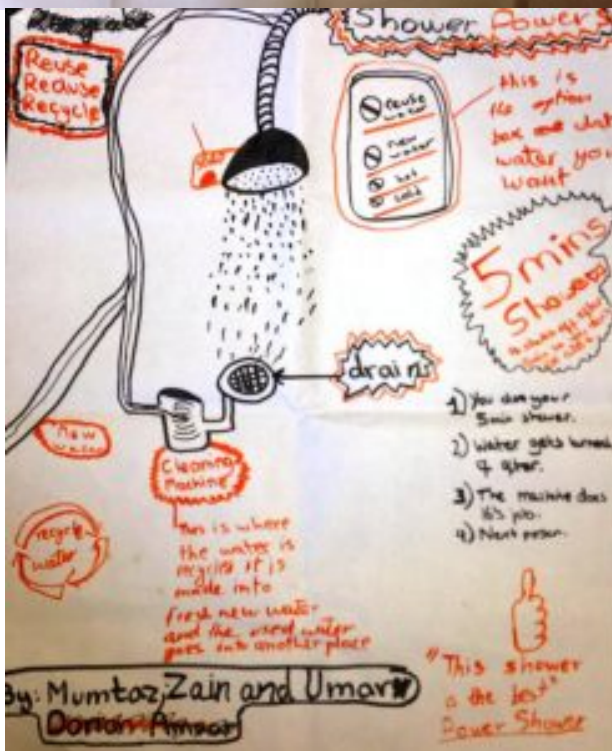 Shower Power S
Reuse
Reause
Recycle
reuse
water
new
water
hot
cold
this is
the option
box
water you
want
5 mins
Shower
drains
1) You
5min shower.
2) Water gets turned
after.
3) The machine does
it's job.
4) Next
new
water
Cleaning
Machine
recycle
water
This is where
the water is
it is
made into
fresh new water
and the used water
goes into another place
"This shower
is the best"
Power Shower
By: Mumtaz, Zain and Umar